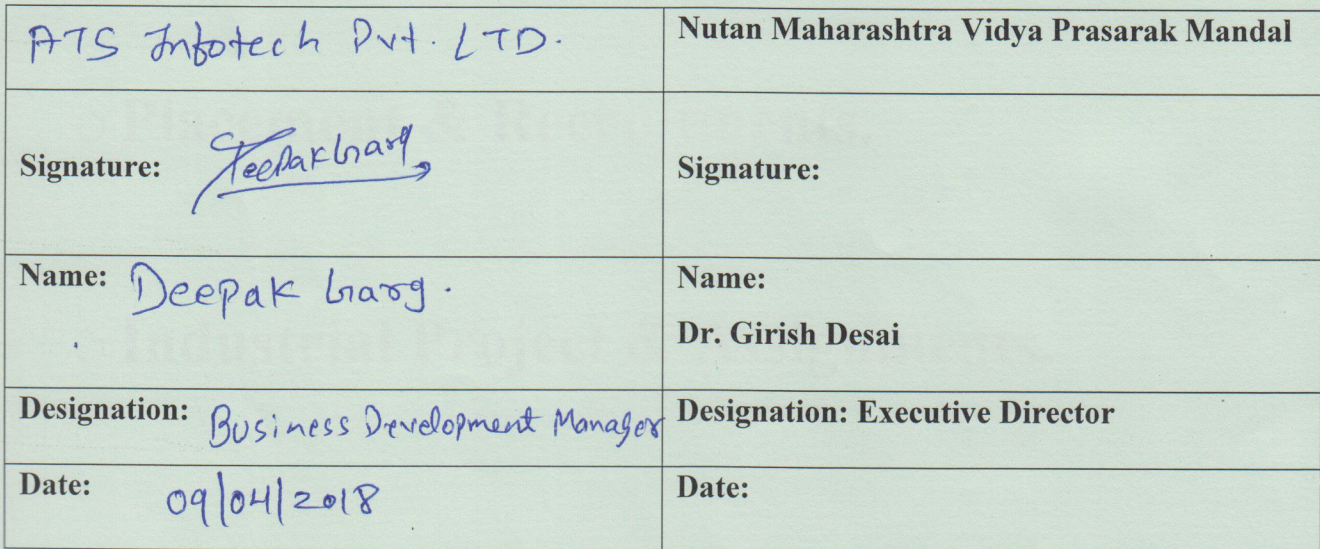 ATS Infotech Pvt. LTD.
Nutan Maharashtra Vidya Prasarak Mandal
Signature: Deepak Garg
Signature:
Name: Deepak Garg.
Name:
Dr. Girish Desai
Designation: Business Development Manager
Designation: Executive Director
Date: 09/04/2018
Date: